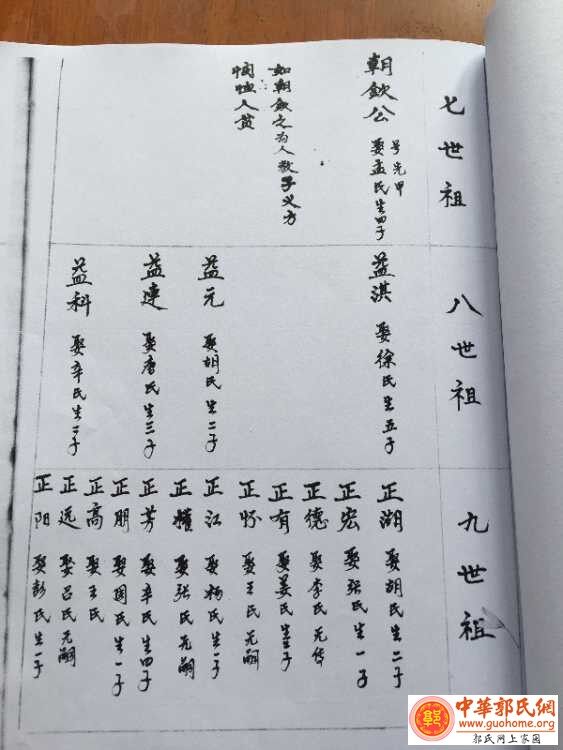 七世祖
朝欽公
号先甲
娶孟氏生四子
如朝欽之为人教子义方
恤人贫
八世祖
益淇 娶徐氏生五子
益元 娶胡氏生二子
益連 娶唐氏生三子
益科 娶辛氏生二子
九世祖
正湖 娶胡氏生二子
正宏 娶張氏生一子
正德 娶李氏无传
正有 娶姜氏生三子
正怀 娶王氏无嗣
正江 娶杨氏生一子
正權 娶张氏无嗣
正芳 娶辛氏生四子
正朋 娶周氏生一子
正高 娶王氏
正远 娶吕氏无嗣
正阳 娶彭氏生一子
中華郭氏網
www.guohome.org
郭氏网上家园